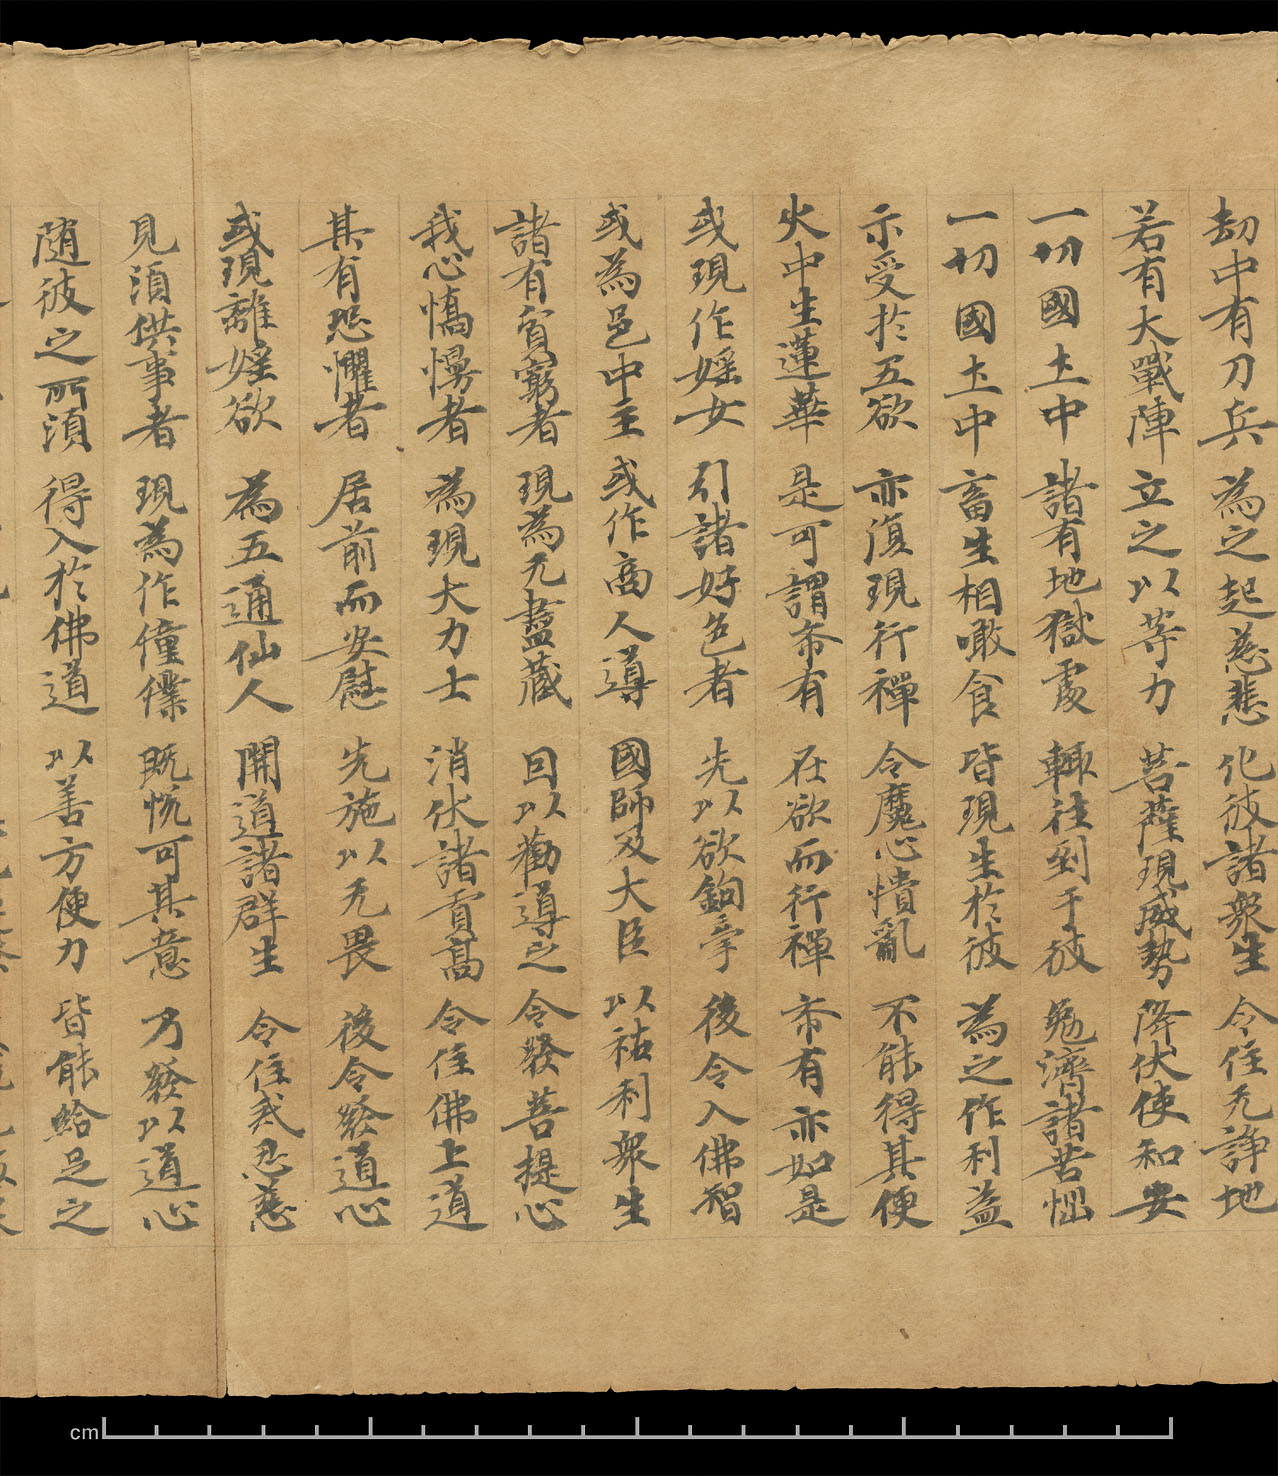 劫中有刀兵 為之起慈悲 化彼諸衆生 令住无諍地
若有大戰陣 立之以等力 菩薩現威勢 降伏使和安
一切國土中 諸有地獄處 輙往到于彼 勉濟諸苦惱
一切國土中 畜生相噉食 皆現生於彼 為之作利益
示受於五欲 亦復現行禪 令魔心憒亂 不能得其便
火中生蓮華 是可謂希有 在欲而行禪 希有亦如是
或現作婬女 引諸好色者 先以欲鉤牽 後令入佛智
或為邑中主 或作商人導 國師及大臣 以祐利衆生
諸有貧窮者 現為无盡藏 因以勸導之 令發菩提心
我心憍慢者 為現大力士 消伏諸貢高 令住佛上道
其有恐懼者 居前而安慰 先施以无畏 後令發道心
或現離婬欲 為五通仙人 開道諸群生 令住戒忍慈
見須供事者 現為作僮僕 既恱可其意 乃發以道心
随彼之所須 得入於佛道 以善方便力 皆能給足之